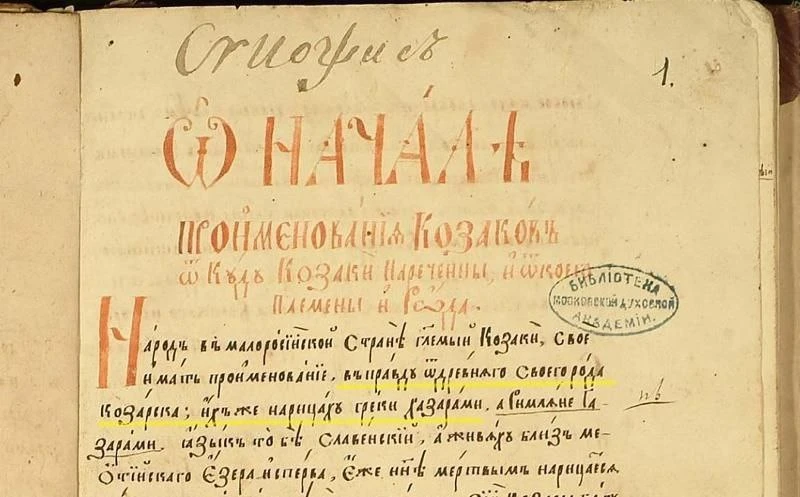 1.
Ѿ НАЧА́ЛѢ
ПРОИ́МЕНОВАНІѦ КОЗАКОВЪ
Ѿ КУДꙊ КОЗАКИ́ НАРЕЧЕННЫ, И́ Ѿ КОЕГ
ПЛЕМЕНЫ И́ РѠДА.
БИБЛІОТЕКА
МОСКОВСКОЙ ДУХОВНОЙ
АКАДЕМІИ.
Народъ въ малоросїйской странѣ глемый Козаки, Свое
имать проименованїе, въправдꙋ ѿдревнѧго Своегорода
Козарска; ихъже нарицахꙋ греки Хазарами, а Римлѧне Га-
зарами. ꙗзыкъ то бѣ Славенскій, а живѧхꙋ близъ ме-
отійскаго Езера исперва, Еже ннѣ мертвымъ нарицаесѧ